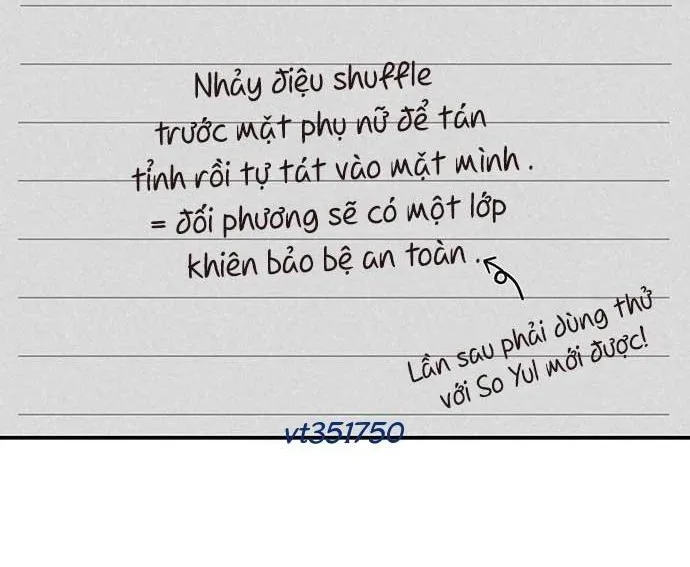 Nhảy điệu shuffle
trước mặt phụ nữ để tán
tỉnh rồi tự tát vào mặt mình.
= đối phương sẽ có một lớp
khiên bảo bệ an toàn.
Lần sau phải dùng thử
với So Yul mới được!
vt351750